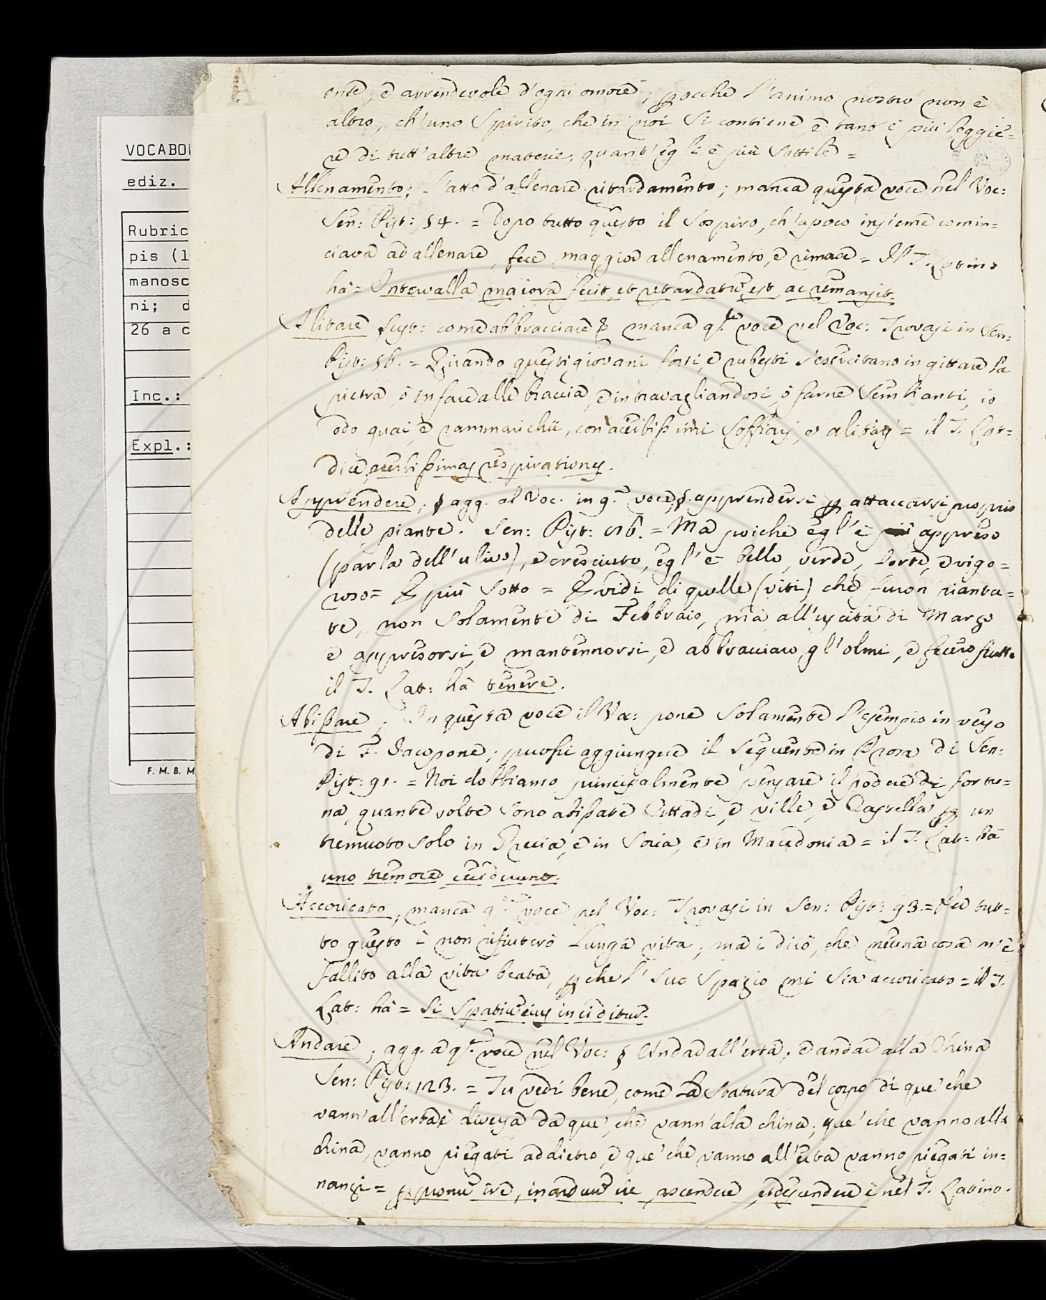 A
VOCABO
ediz.
Rubric
pis (l
manosc
ni; d
26 a c
Inc.:
Expl.:
F. M. B. M
ente, è arrendevole d'ogni omore, perocche l'animo nostro non è
altro, ch'uno Spirito, che in noi si contiene, e tant'è più leggie=
re di tutt'altre materie, quant'egli è più sottile =
Allenamento; L'atto d'allenare ritardamento; manca questa voce nel Voc:
Sen: Pist: 54. = Dopo tutto questo il sospiro, ch'apoco insieme comin=
ciava ad allenare, fece maggiore allenamento, e rimase = Il T. Latino
hà = Intervalla maiora fecit, et retardatus est, ac remansit.
Alitare sust: come abbracciare & manca qta voce nel Voc: Trovasi in Sen:
Pist: 56. = Quando questi giovani forti, e rubesti s'esercitano in gittare la
pietra, ò in fare alle braccia, e in travagliandosi, ò farne sembianti, io
odo guai, e rammarichii, con acerbissimi soffiari, e alitari = il T. Lat:
dice acerbissimas respirationes.
Apprendere. § agg. al Voc. in qta voce §. apprendersi per attaccarsi proprio
delle piante. Sen: Pist: 86. = Ma poiche egl'è appreso
(parla dell'ulivo), e cresciuto, egl'è bello, verde, forte, e vigo=
roso = E più sotto = E vidi di quelle (viti) che furon pianta=
te, non solamente di Febbraio, ma all'uscita di Marzo
e appresorsi, e mantennorsi, e abbracciaro gl'olmi, e fecero frutto
il T. Lat: hà tenere.
Abissare. In questa voce il Voc: pone solamente l'esempio in verso
di F. Iacopone; puossi aggiungere il seguente in Prosa di Sen:
Pist: 91. = Noi dobbiamo principalmente pensare il podere di fortu=
na, quante volte sono abissate Cittadi, e ville, e Castella per un
tremuoto solo in Grecia, e in Soria, e in Macedonia = il T. Lat: hà
uno tremore
Accoricato, manca qta voce nel Voc: Trovasi in Sen: Pist: 93. = Per tut=
to questo i' non rifiuterò lunga vita, ma i' dicò, che neuna cosa m'è
fallito alla vita beata, perche l' suo spazio mi sia accoricato = il T.
Lat: hà = si spatium eius inciditur.
Andare, agg. a qta voce nel Voc: § Andar all'erta, e andar alla china
Sen: Pist: 123. = Tu vedi bene, come la statura del corpo di que' che
vann'all'erta è diversa da que', che vann'alla china; que' che vanno alla
china, vanno piegati addietro, e que' che vanno all'erta vanno piegati in=
nanzi = per pronum ire, in arduum ire, ascendere, et descendere è nel T. Latino.